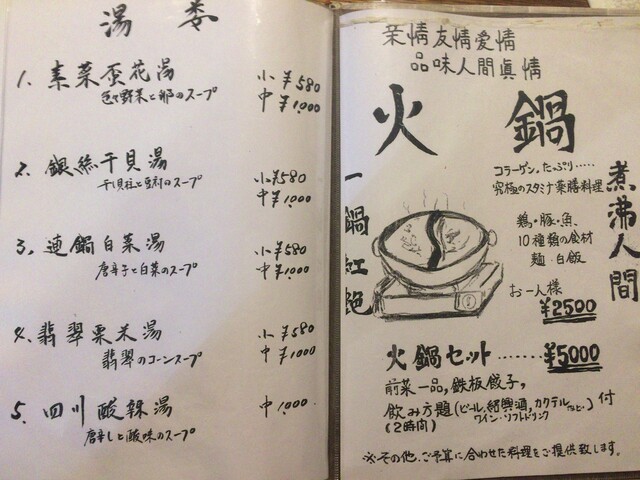 湯类
1. 素菜蛋花湯 小¥580
色々野菜と卵のスープ 中¥1,000
2. 銀絲干貝湯 小¥580
干し貝柱と豆腐のスープ 中¥1,000
3. 連鍋白菜湯 小¥580
唐辛子と白菜のスープ 中¥1,000
4. 翡翠粟米湯 小¥580
翡翠のコーンスープ 中¥1,000
5. 四川酸辣湯 中1,000.
唐辛しと酸味のスープ
亲情友情愛情
品味人間真情
火鍋
コラーゲン、たっぷり……
究極のスタミナ薬膳料理
一鍋紅艶
煮沸人間
鶏・豚・魚、
10種類の食材
麺・白飯
お一人様
¥2500
火鍋セット……¥5000
前菜一品,鉄板餃子,
飲み方題(ビール.紹興酒,カクテル)付
(2時間) ワイン・ソフトドリンク
※その他、ご予算に合わせた料理をご提供致します。